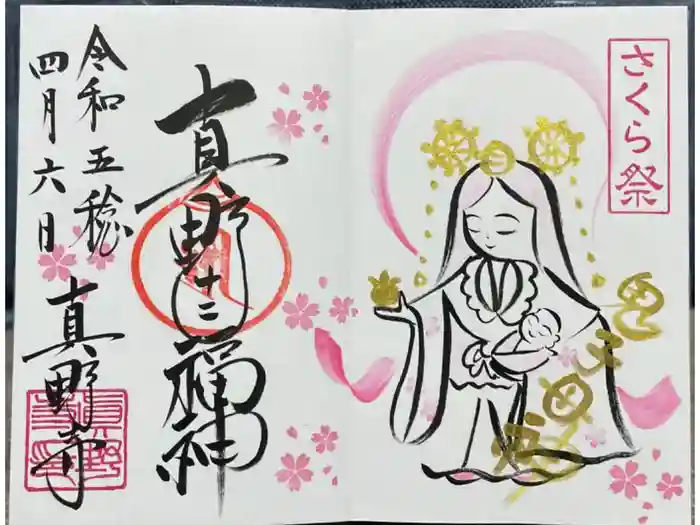 さくら祭
鬼子母神
真野十二福神
令和五稔
四月六日
真野寺